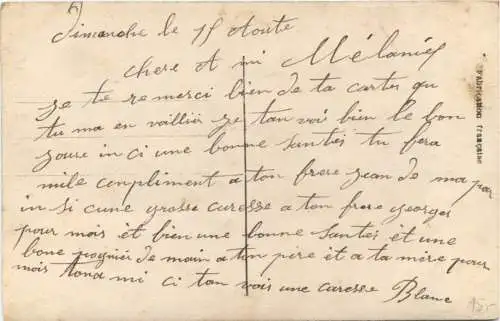 Dimanche le 15 Aoute
chere A mi Mélanie
Je te remerci bien de ta cartes qu
tu ma en vaillier je tan voi bien le bon
joure in ci une bonne santés tu fera
mile conpliment a ton frere jean de ma par
in si cune grosse caresse a ton frere georges
pour mois et bien une bonne santés et une
bone pognier de main a ton père et a ta mère pour
mois tona mi ci tan vois une caresse Blanc
Fabrication française